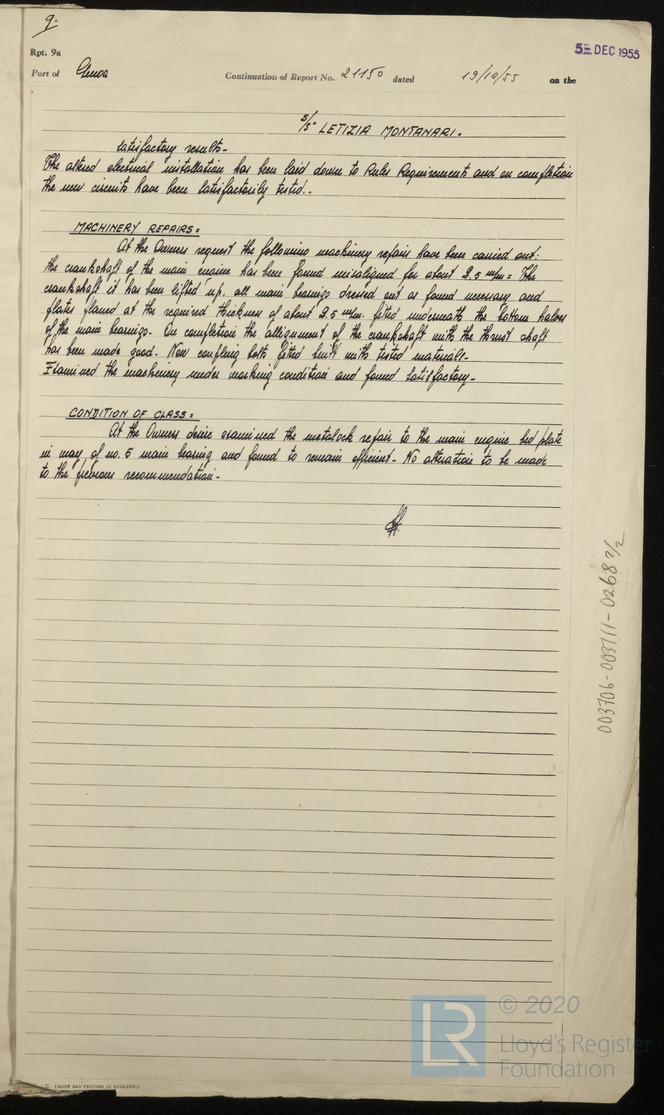 9.
Rpt. 9a
5 DEC 1955
Port of Genoa Continuation of Report No. 21150 dated 19/10/55 on the
S/S LETIZIA MONTANARI.
satisfactory results.
The altered electrical installation has been laid down to Rules Requirements and on completion
the new circuits have been satisfactorily tested.
MACHINERY REPAIRS:
At the Owners request the following machinery repair have been carried out:
the crankshaft of the main engine has been found misaligned for about 2,5 m/m = The
crankshaft it has been lifted up, all main bearings dressed out as found necessary and
plates planed at the required thickness of about 2.5 m/m. fited underneath the bottom halves
of the main bearings. On completion the allignment of the crankshaft with the thrust shaft
has been made good. New coupling bolts fited built with tested materials.
Examined the machinery under working condition and found satisfactory.
CONDITION OF CLASS:
At the Owners desire examined the metalock repair to the main engine bed plate
in way of no. 5 main bearing and found to remain efficient. No alteration to be made
to the previous recommendation.
003706-003711-0268 2/2
© 2020
LR
Lloyd's Register
Foundation
(MADE AND PRINTED IN ENGLAND.)